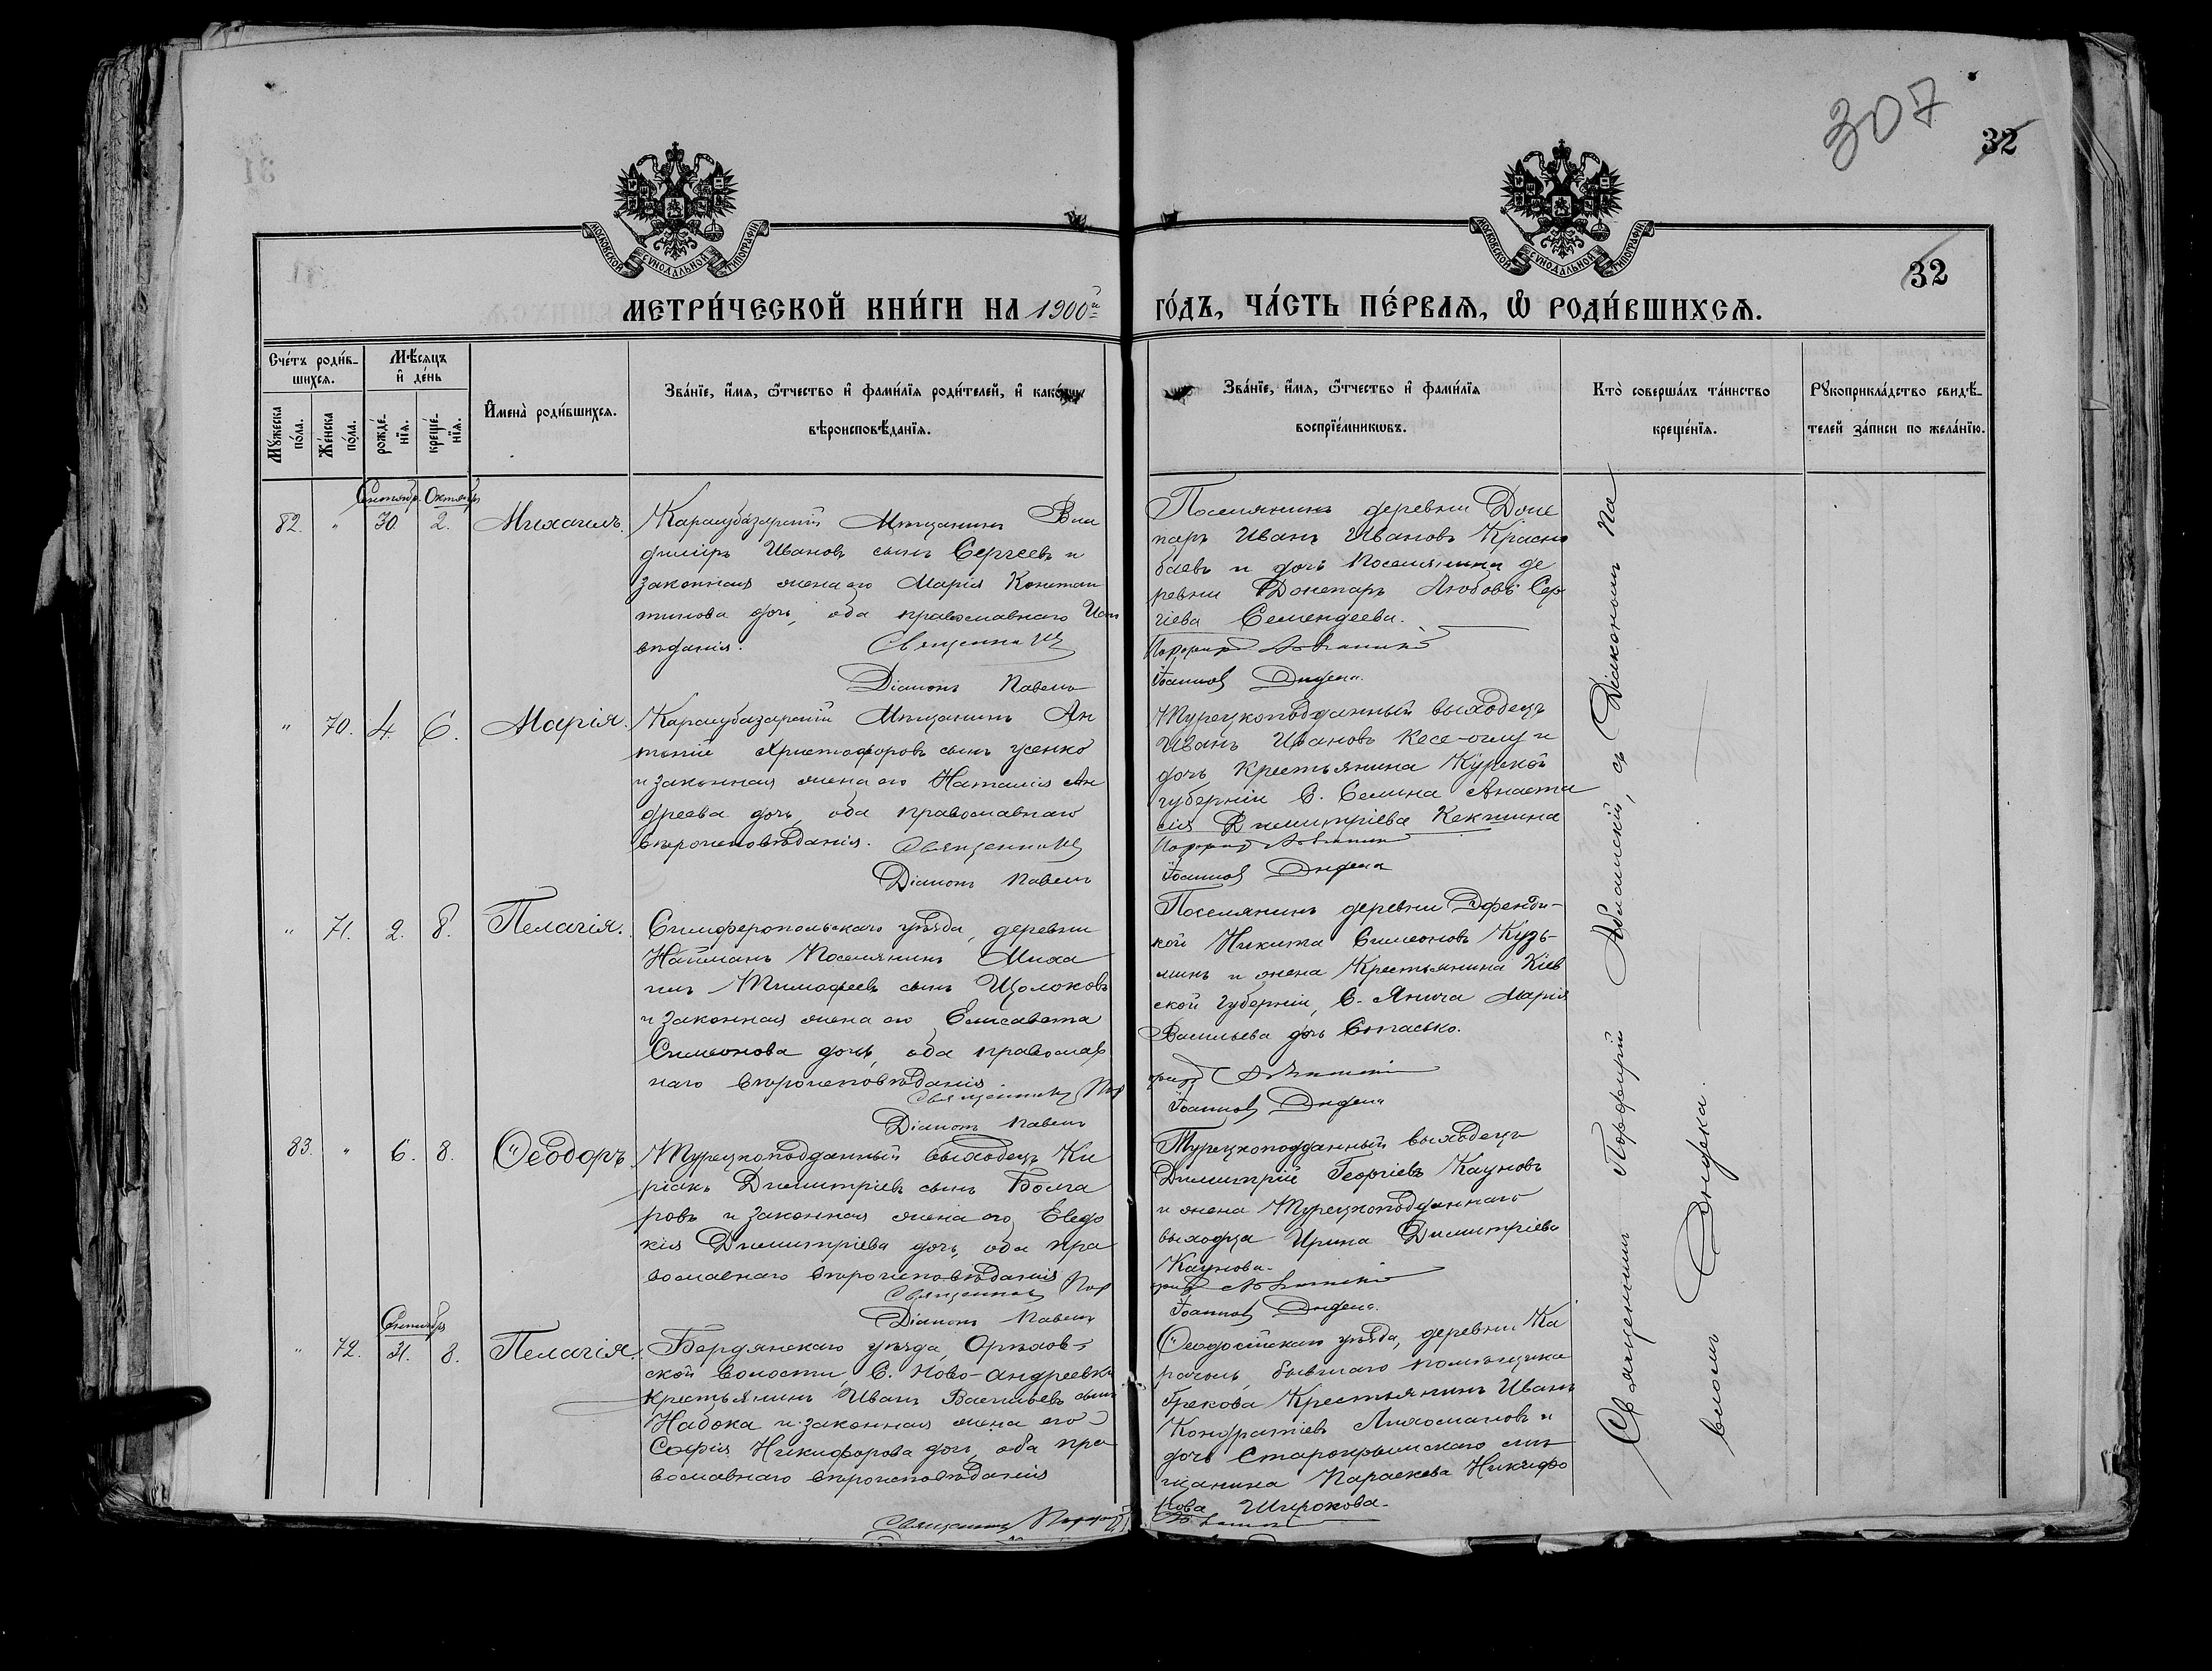 307
32
32
МОСКОВСКОЙ СѴНОДАЛЬНОЙ ТИПОГРАФІИ
МОСКОВСКОЙ СѴНОДАЛЬНОЙ ТИПОГРАФІИ
МЕТРИ́ЧЕСКОЙ КНИ́ГИ НА 1900й
ГО́ДЪ, ЧА́СТЬ ПЕ́РВАѦ, Ѽ РОДИ́ВШИХСѦ.
Сче́тъ роди́в-
шихсѧ.
Мꙋжеска по́ла.
Же́нска по́ла.
Мѣ́сѧцъ
и҆ де́нь
рожде́-
нїѧ.
креще́-
нїѧ.
И҆мена̀ роди́вшихсѧ.
Зва́нїе, и҆́мѧ, ѻ҆́тчество и҆ фами́лїѧ роди́телей, и҆ како́гѡ
вѣроисповѣ́данїѧ.
Зва́нїе, и҆́мѧ, ѻ҆́тчество и҆ фами́лїѧ
воспрїе́мникѡвъ.
Кто̀ соверша́лъ та́инство
креще́нїѧ.
Рꙋкоприкла́дство свидѣ́-
телей за́писи по жела́нїю.
Сентябр. Октябр
82. " 30 2. Михаилъ.
Карасубазарскій Мѣщанинъ Вла
димiръ Ивановъ сынъ Сергеевъ и
законная жена его Марія Констан
тинова дочь, оба православнаго Исп
вѣданія.
Священникъ
Діаконъ Павелъ
Поселянинъ деревни Доне
паръ Иванъ Ивановъ Красно
баевъ и дочь поселянина де
ревни Донепаръ Любовь Сер
гіева Семендеева.
" 70. 4. 6. Марія.
Карасубазарскій Мѣщанинъ Ан
тоній Христофоровъ сынъ Усенко
и законная жена его Наталія Ан
дреева дочь, оба православнаго
вѣроисповѣданія. Священникъ
Діаконъ Павелъ
Турецкоподданный выходецъ
Иванъ Ивановъ Кесе-оглу и
дочь Крестьянина Курской
губерніи С. Селина Анаста
сія Димитріева Кекшина
" 71. 2. 8. Пелагія.
Симферопольскаго уѣзда, деревни
Найманъ Поселянинъ Миха
илъ Тимофеевъ сынъ Щолоковъ
и законная жена его Елисавета
Симеонова дочь, оба православ
наго вѣроисповѣданія.
Священникъ Пор
Діаконъ Павелъ
Поселянинъ деревни Эфенди-
кой Никита Симеоновъ Кузь-
минъ и жена Крестьянина Кіев
ской губерніи, С. Янича Марія
Васильева дочь
83. " 6. 8. Ѳеодоръ.
Турецкоподданный выходецъ Ки
ріакъ Димитріевъ сынъ Болга
ровъ и законная жена его Евдо
кія Димитріева дочь, оба пра
вославнаго вѣроисповѣданія
Священникъ Пор
Діаконъ Павелъ
Турецкоподданный выходецъ
Димитрій Георгіевъ Кауновъ
и жена Турецкоподданнаго
выходца Ирина Димитріева
Каунова.
Сентября
" 72. 31. 8. Пелагія.
Бердянскаго уѣзда, Орѣхов-
ской волости, С. Ново-Андреевки
Крестьянинъ Иванъ Васильевъ сынъ
Набока и законная жена его
Софія Никифорова дочь, оба пра
вославнаго вѣроисповѣданія
Священникъ
Ѳеодосійскаго уѣзда, деревни Ка
рагозъ, бывшаго помѣщика
Грекова Крестьянинъ Иванъ
Кондратіевъ и
дочь Старокрымскаго мѣ
щанина Параскева Никифо
рова Широкова.
Священникъ Порфирій съ Діакономъ Па
вломъ